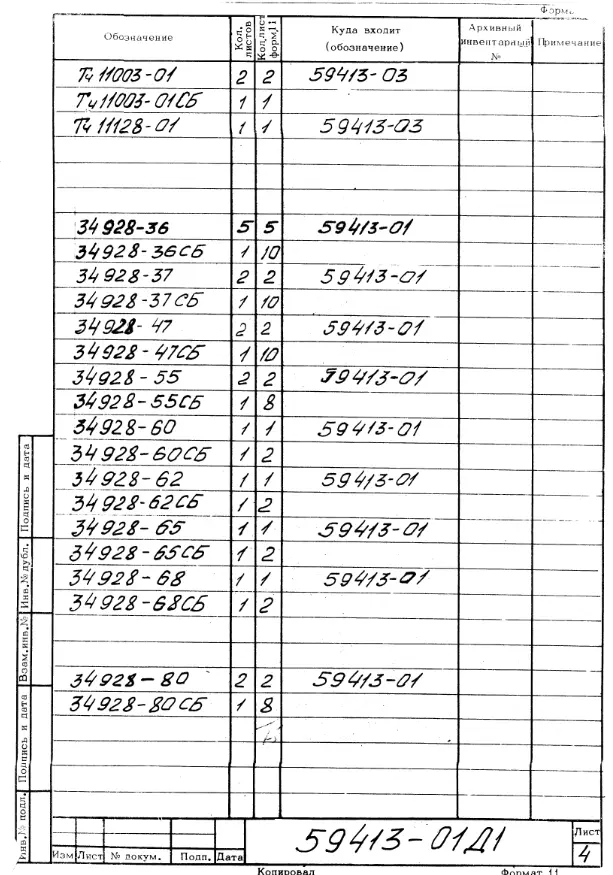 Форма
Обозначение | Кол. листов | Кол.лист форм.11 | Куда входит (обозначение) | Архивный инвентарный № | Примечание
Тч 11003-01 2 2 59413-03
Тч 11003-01СБ 1 1
Тч 11128-01 1 1 59413-03
34928-36 5 5 59413-01
34928-36СБ 1 10
34928-37 2 2 59413-01
34928-37СБ 1 10
34928-47 2 2 59413-01
34928-47СБ 1 10
34928-55 2 2 59413-01
34928-55СБ 1 8
34928-60 1 1 59413-01
34928-60СБ 1 2
34928-62 1 1 59413-01
34928-62СБ 1 2
34928-65 1 1 59413-01
34928-65СБ 1 2
34928-68 1 1 59413-01
34928-68СБ 1 2
34928-80 2 2 59413-01
34928-80СБ 1 8
Подпись и дата
Инв.№ дубл.
Взам.инв.№
Подпись и дата
Инв.№ подл.
59413-01Д1
Лист
4
Изм Лист № докум. Подп. Дата
Копировал Формат 11